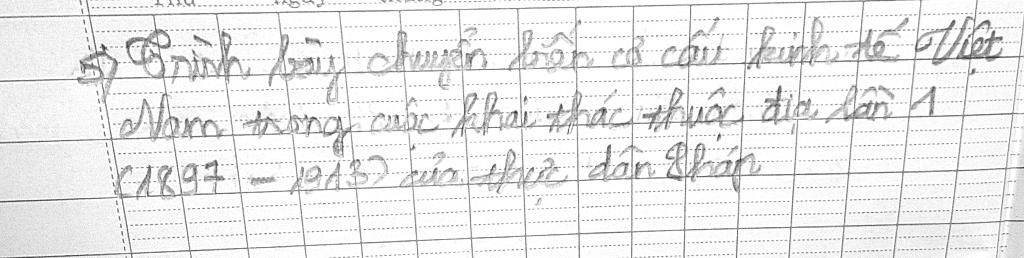 5) Trình bày chuyển biến cơ cấu kinh tế Việt
Nam trong cuộc khai thác thuộc địa lần 1
(1897 - 1913) của thực dân Pháp